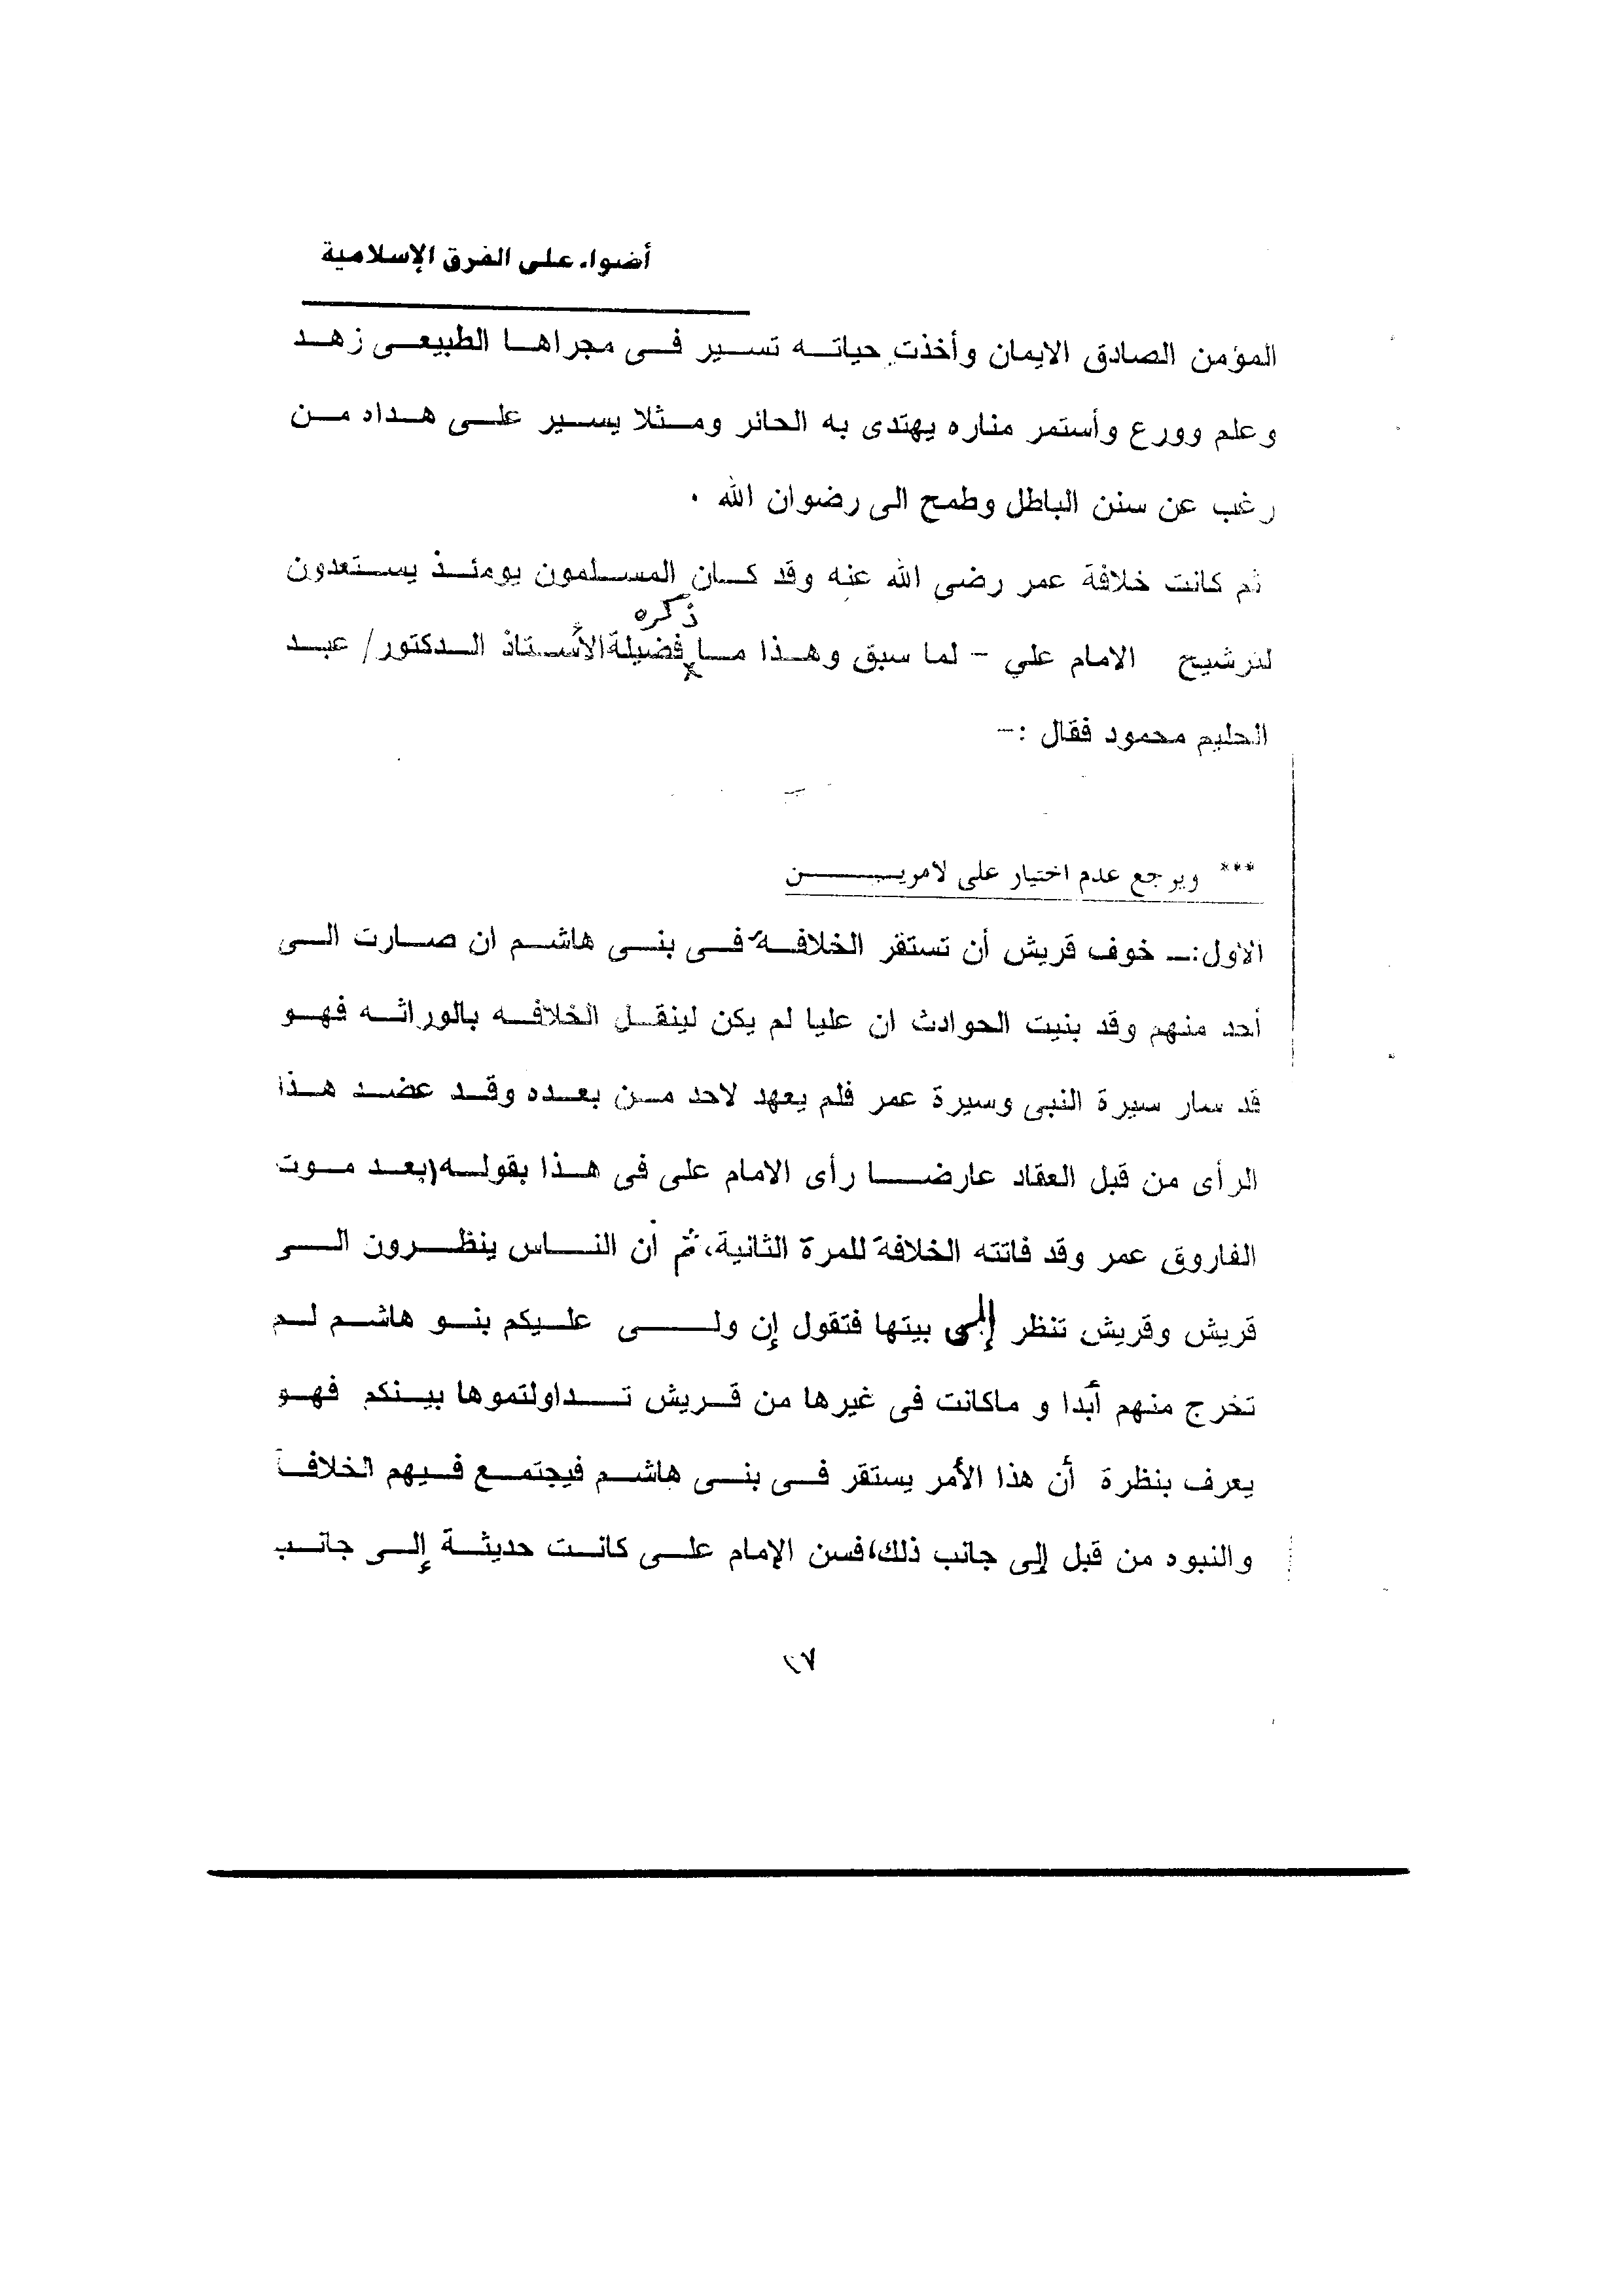 أضواء على الفرق الإسلامية
المؤمن الصادق الايمان وأخذت حياته تسير فى مجراها الطبيعى زهد
وعلم وورع وأستمر مناره يهتدى به الحائر ومثلا يسير على هداه من
رغب عن سنن الباطل وطمح الى رضوان الله .
ثم كانت خلافة عمر رضى الله عنه وقد كان المسلمون يومئذ يستعدون
لترشيح الامام على - لما سبق وهذا ما ذكره فضيلة الأستاذ الدكتور/ عبد
الحليم محمود فقال :-
*** ويرجع عدم اختيار على لامرين
الاول:- خوف قريش أن تستقر الخلافة فى بنى هاشم ان صارت الى
أحد منهم وقد بنيت الحوادث ان عليا لم يكن لينقل الخلافه بالوراثه فهو
قد سار سيرة النبى وسيرة عمر فلم يعهد لاحد من بعده وقد عضد هذا
الرأى من قبل العقاد عارضا رأى الامام على فى هذا بقوله (بعد موت
الفاروق عمر وقد فاتته الخلافة للمرة الثانية، ثم أن الناس ينظرون الى
قريش وقريش تنظر إلى بيتها فتقول إن ولى عليكم بنو هاشم لم
تخرج منهم أبدا و ماكانت فى غيرها من قريش تداولتموها بينكم فهو
يعرف بنظرة أن هذا الأمر يستقر فى بنى هاشم فيجتمع فيهم الخلافة
والنبوه من قبل إلى جانب ذلك، فسن الإمام على كانت حديثة إلى جانب
١٧